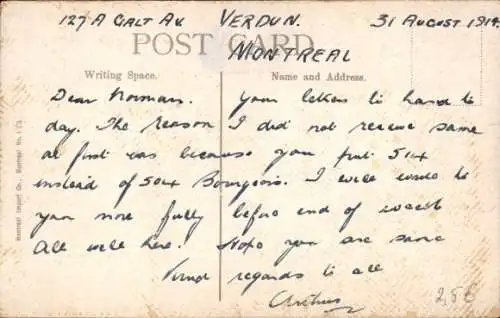 127A GALT AV. VERDUN. 31 AUGUST 1914.
POST CARD
MONTREAL
Writing Space. Name and Address.
Dear Norman. Your letters to hand to
day. The reason I did not receive same
at first was because you put 514
instead of 504 Bourgeois. I will write to
you more fully before end of week
All well here. Hope you are same
Kind regards to all
Arthur
Montreal Import Co., Montreal No.
2,50